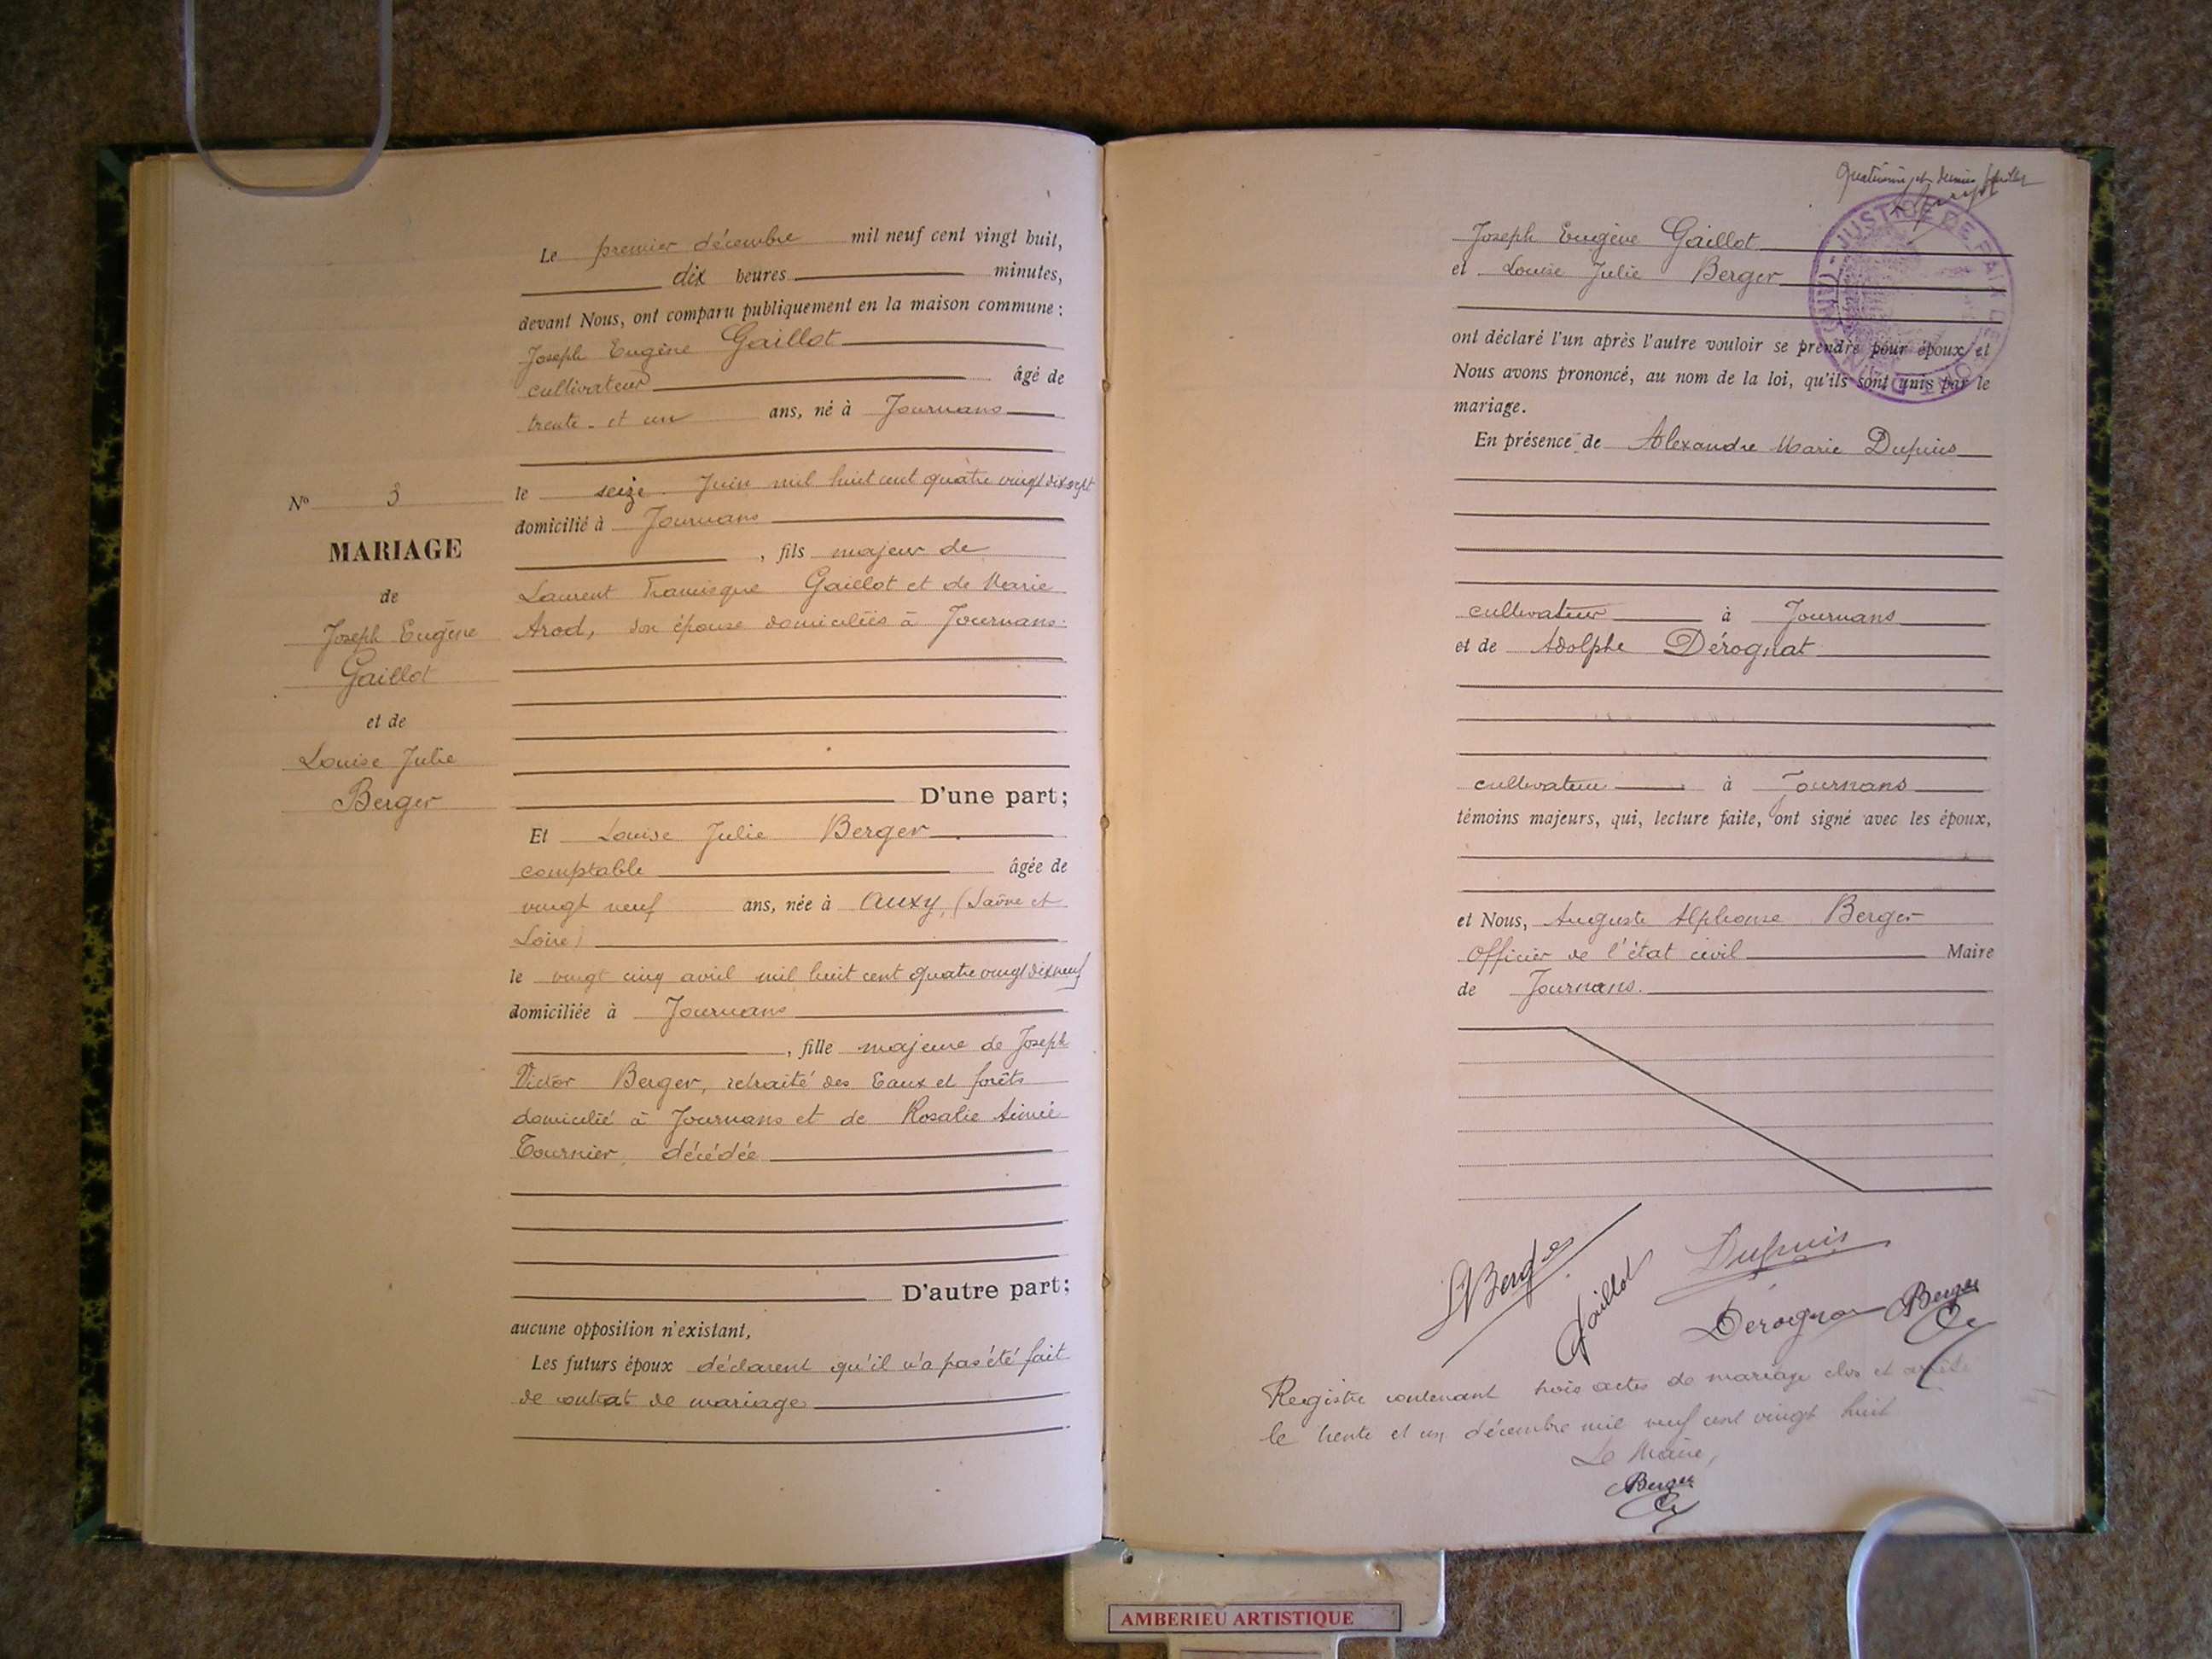 Le premier décembre mil neuf cent vingt huit,
dix heures minutes,
devant Nous, ont comparu publiquement en la maison commune :
Joseph Eugène Gaillot
cultivateur âgé de
trente - et un ans, né à Journans
le seize Juin mil huit cent quatre vingt dix sept
domicilié à Journans
, fils majeur de
Laurent Francisque Gaillot et de Marie
Arod, son épouse domiciliés à Journans.
D'une part;
Nº 3
MARIAGE
de
Joseph Eugène
Gaillot
et de
Louise Julie
Berger
Et Louise Julie Berger
comptable âgée de
vingt neuf ans, née à Auxy, (Saône et
Loire)
le vingt cinq avril mil huit cent quatre vingt dix neuf
domiciliée à Journans
, fille majeure de Joseph
Victor Berger, retraité des Eaux et forêts
domicilié à Journans et de Rosalie Aimée
Tournier, décédée
D'autre part;
aucune opposition n'existant,
Les futurs époux déclarent qu'il n'a pas été fait
de contrat de mariage
Quatrième et dernier feuillet
JUSTICE DE PAIX DE
Joseph Eugène Gaillot
et Louise Julie Berger
ont déclaré l'un après l'autre vouloir se prendre pour époux et
Nous avons prononcé, au nom de la loi, qu'ils sont unis par le
mariage.
En présence de Alexandre Marie Dupuis
cultivateur à Journans
et de Adolphe Dérognat
cultivateur à Journans
témoins majeurs, qui, lecture faite, ont signé avec les époux,
et Nous, Auguste Alphonse Berger
Officier de l'état civil Maire
de Journans.
LBerger Gaillot Dupuis
Dérognat Berger
Registre contenant trois actes de mariage clos et arrêté
le trente et un décembre mil neuf cent vingt huit
Le Maire,
Berger
AMBERIEU ARTISTIQUE